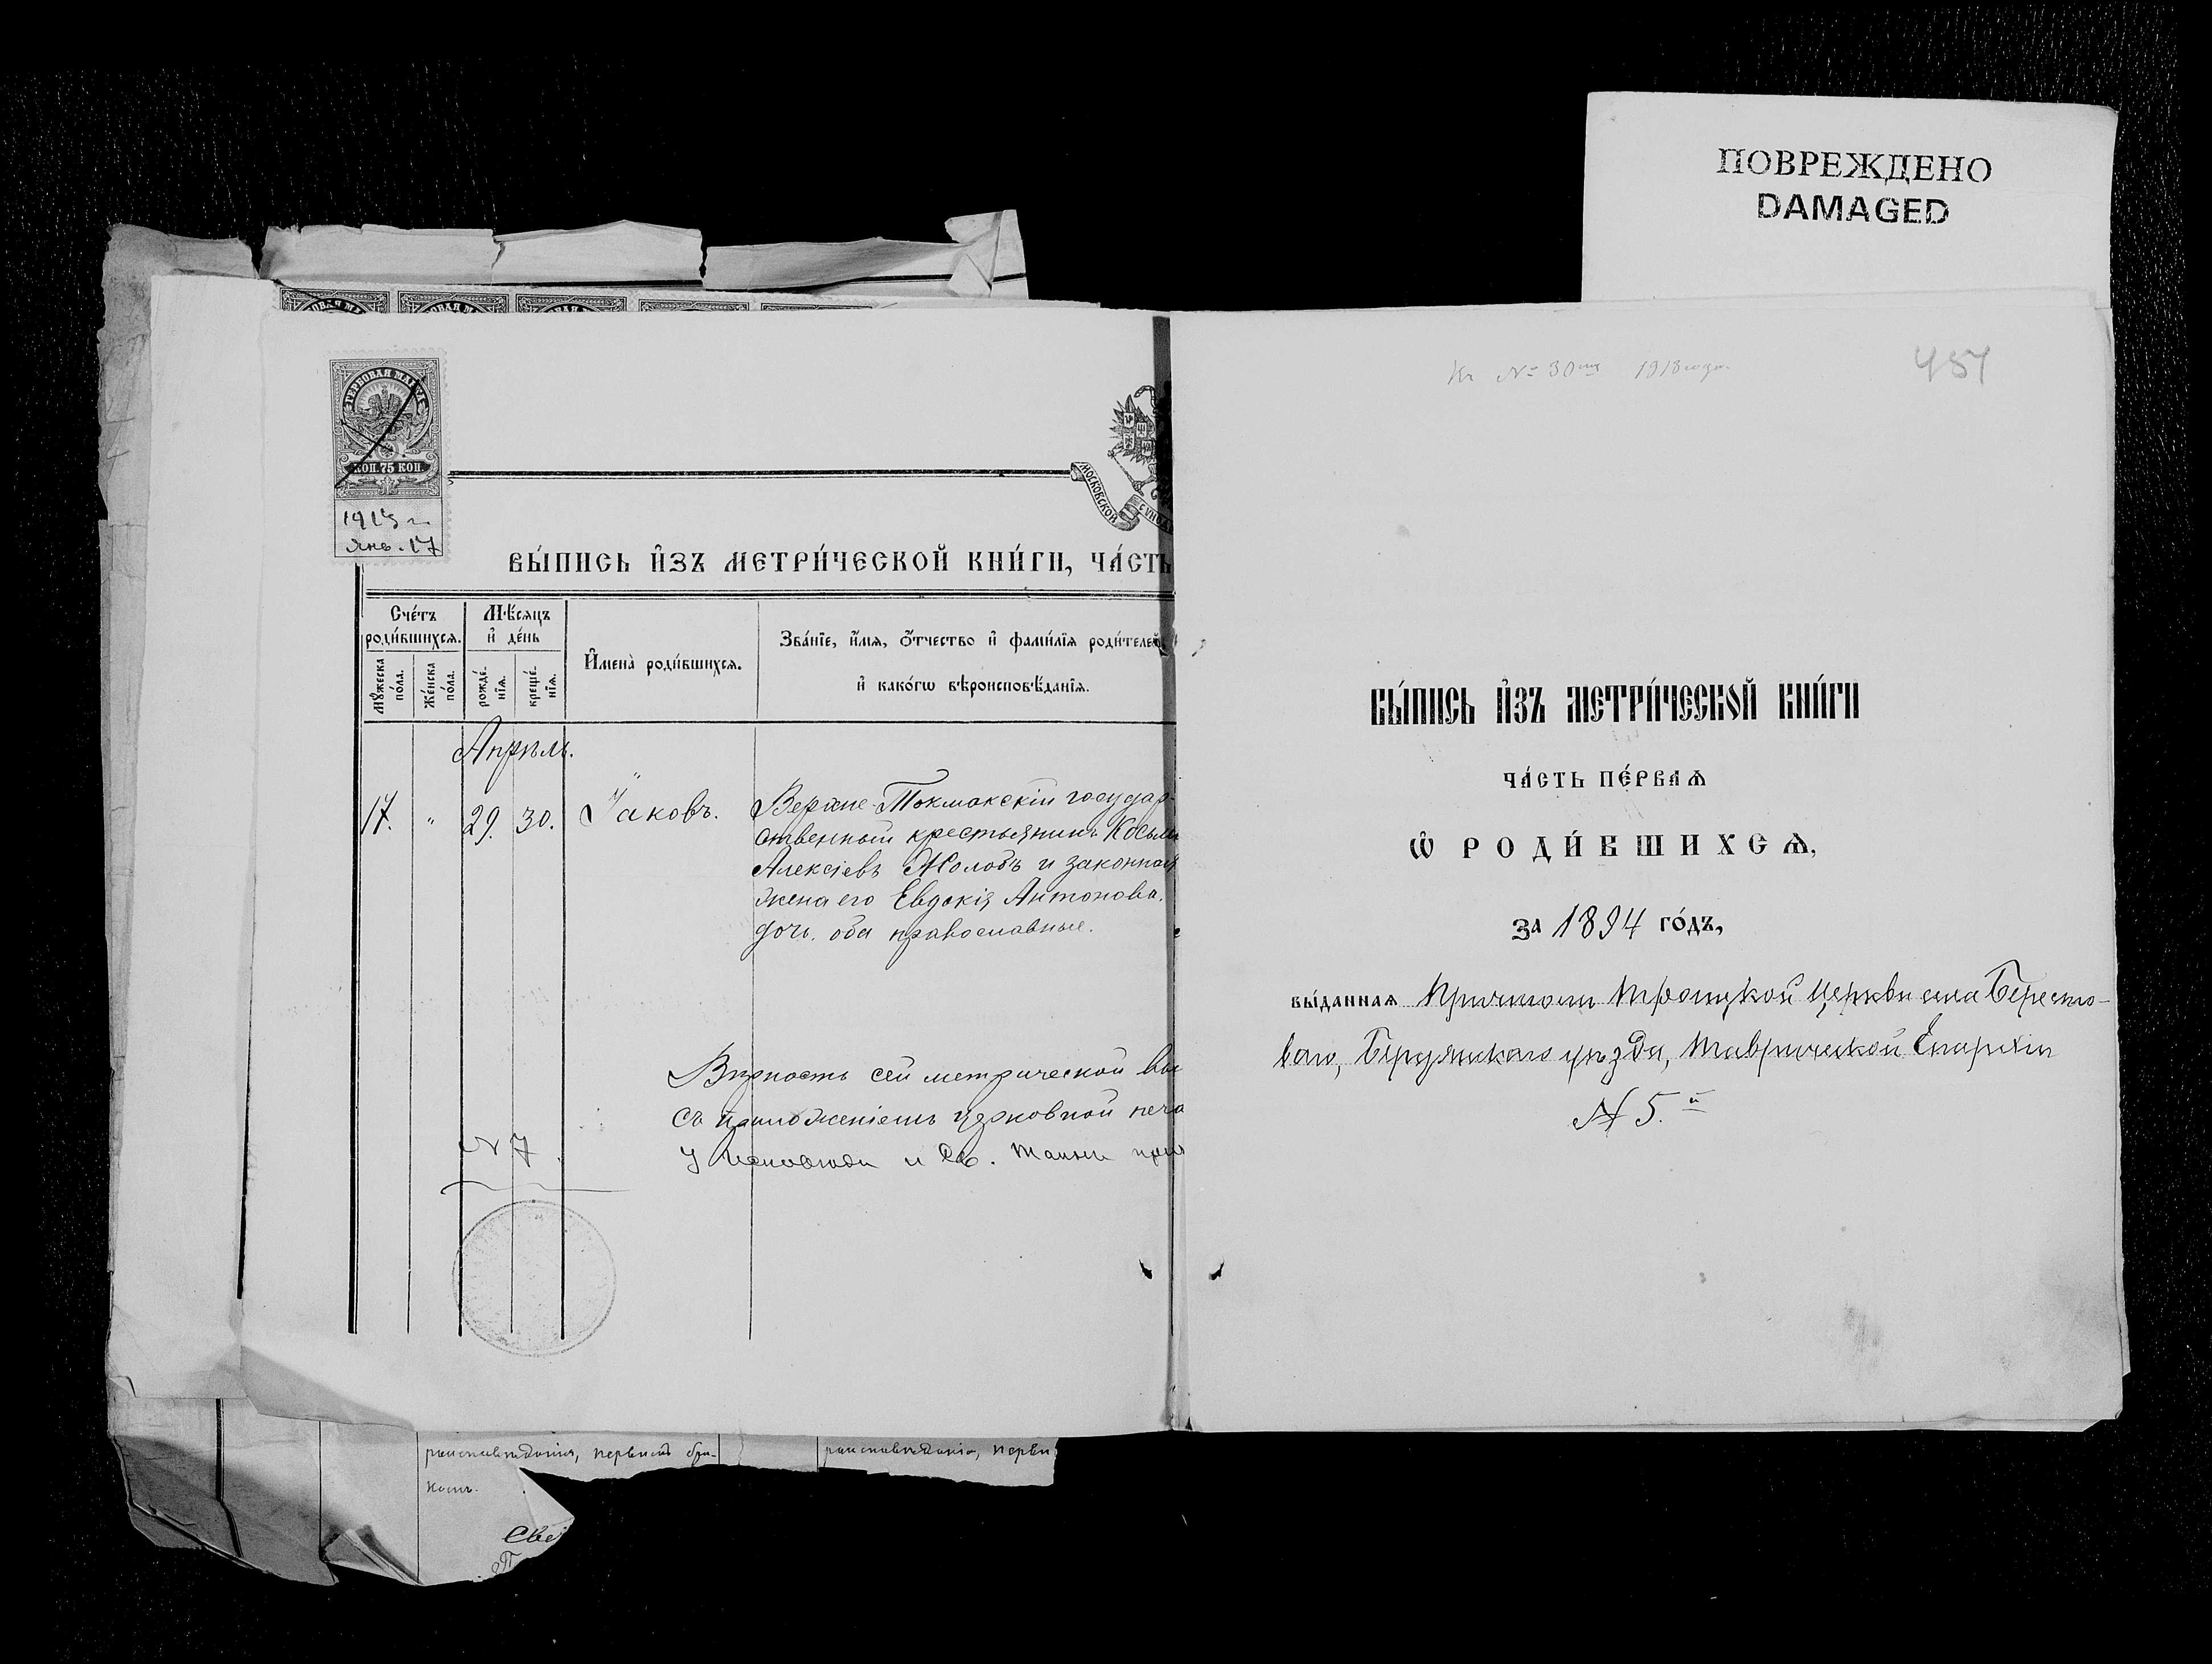 ПОВРЕЖДЕНО
DAMAGED
КОП. 75 КОП.
Янв. 17
МОСКОВСКОЙ
ВЫ́ПИСЬ И҆ЗЪ МЕТРИ́ЧЕСКОЙ КНИ́ГИ, ЧА́СТЬ
Сче́тъ роди́вшихся.
Мꙋ́жеска по́ла.
Же́нска по́ла.
Мѣ́сяцъ и҆ де́нь
рожде́нїѧ.
креще́нїѧ.
И҆мена̀ роди́вшихсѧ.
Зва́нїе, и҆́мѧ, ѻ҆́тчество и҆ фами́лїѧ роди́телей,
и҆ како́гѡ вѣроисповѣ́данїѧ.
Апрѣль.
17. " 29. 30. Іаковъ.
Верхне-Токмакскій государ-
ственный крестьянинъ Косьма
Алексіевъ Жолобъ и законная
жена его Евдокія Антонова
дочь, оба православные.
Вѣрность сей метрической
съ приложеніемъ церковной печа
№ 7
роисповѣданія, первымъ бра-
комъ.
роисповѣданія, первы
Сви
№ 30 1918 года.
457
ВЫ́ПИСЬ И҆ЗЪ МЕТРИ́ЧЕСКОЙ КНИ́ГИ
ЧА́СТЬ ПЕ́РВАѦ
Ѡ҆ РОДИ́ВШИХСѦ,
за 1894 го́дъ,
вы́даннаѧ Причтомъ Троицкой Церкви села Бересто-
ваго, Бердянскаго уѣзда, Таврической Епархіи
№ 5.й